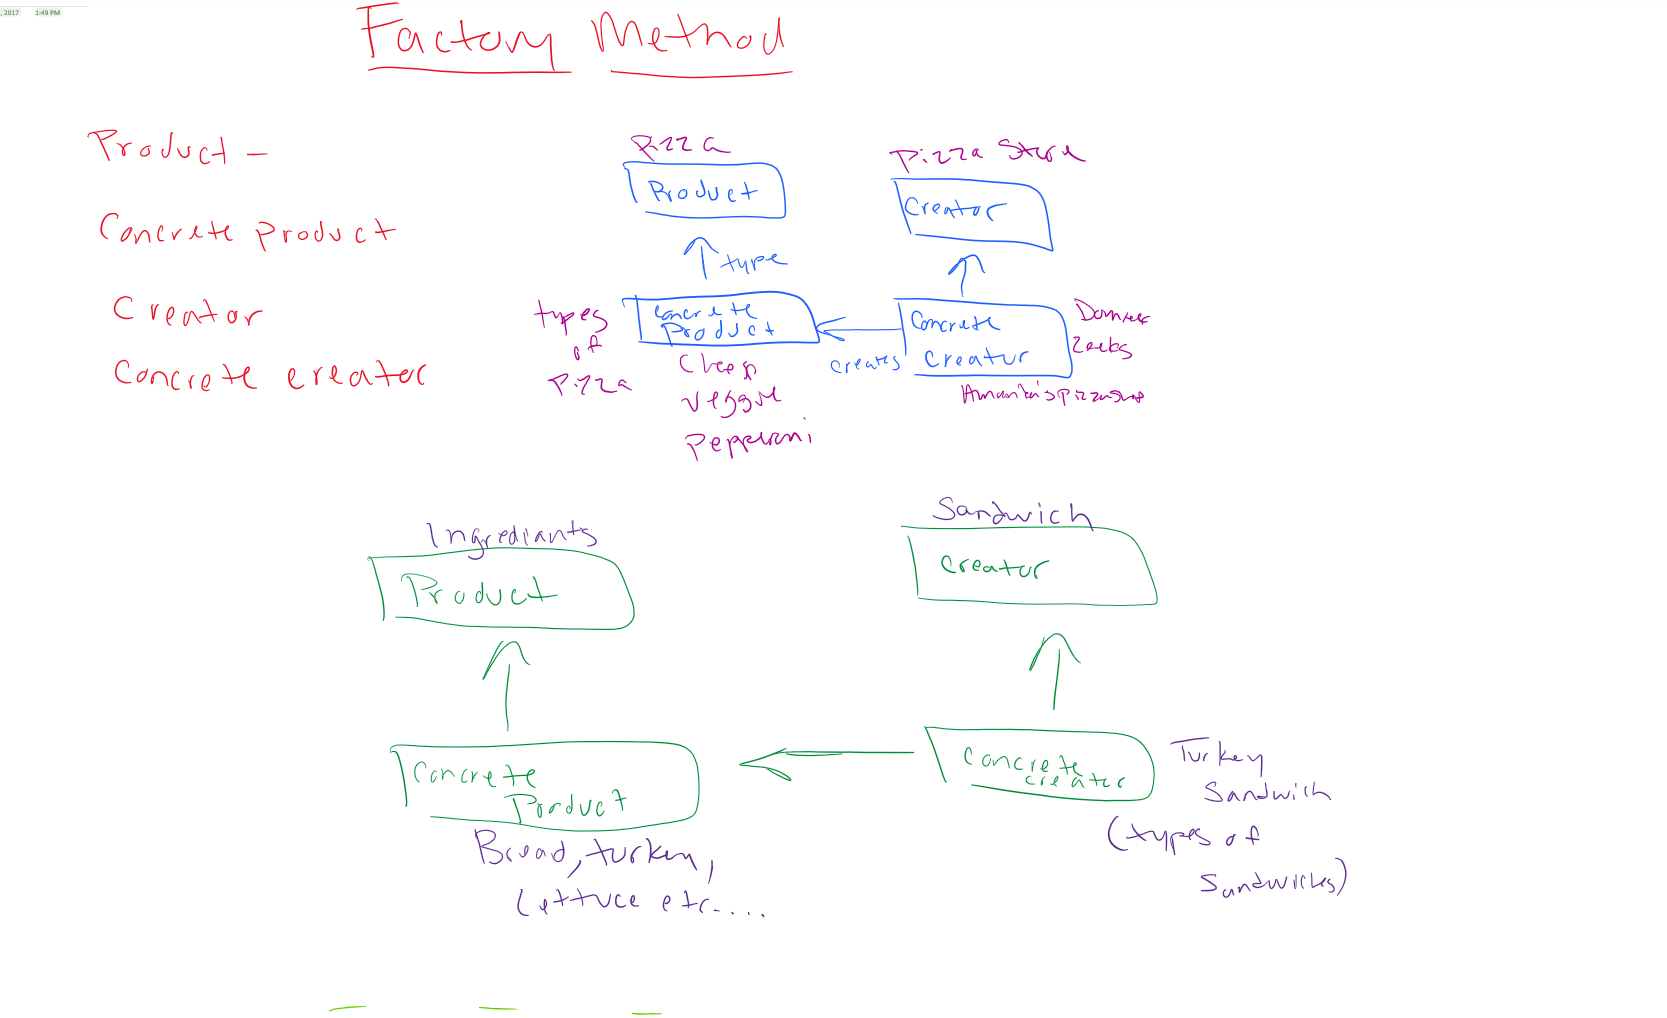 , 2017 1:49 PM
Factory Method
Product –
Concrete product
Creator
Concrete creator
Pizza
Product
type
Concrete
Product
types
of
Pizza
Veggie
Pepperoni
Pizza Store
Creator
Concrete
Creator
creates
Zeeks
Ingrediants
Product
Concrete
Product
Bread, turkey,
Lettuce etc....
Sandwich
Creator
Concrete
creator
Turkey
Sandwich
(types of
Sandwiches)